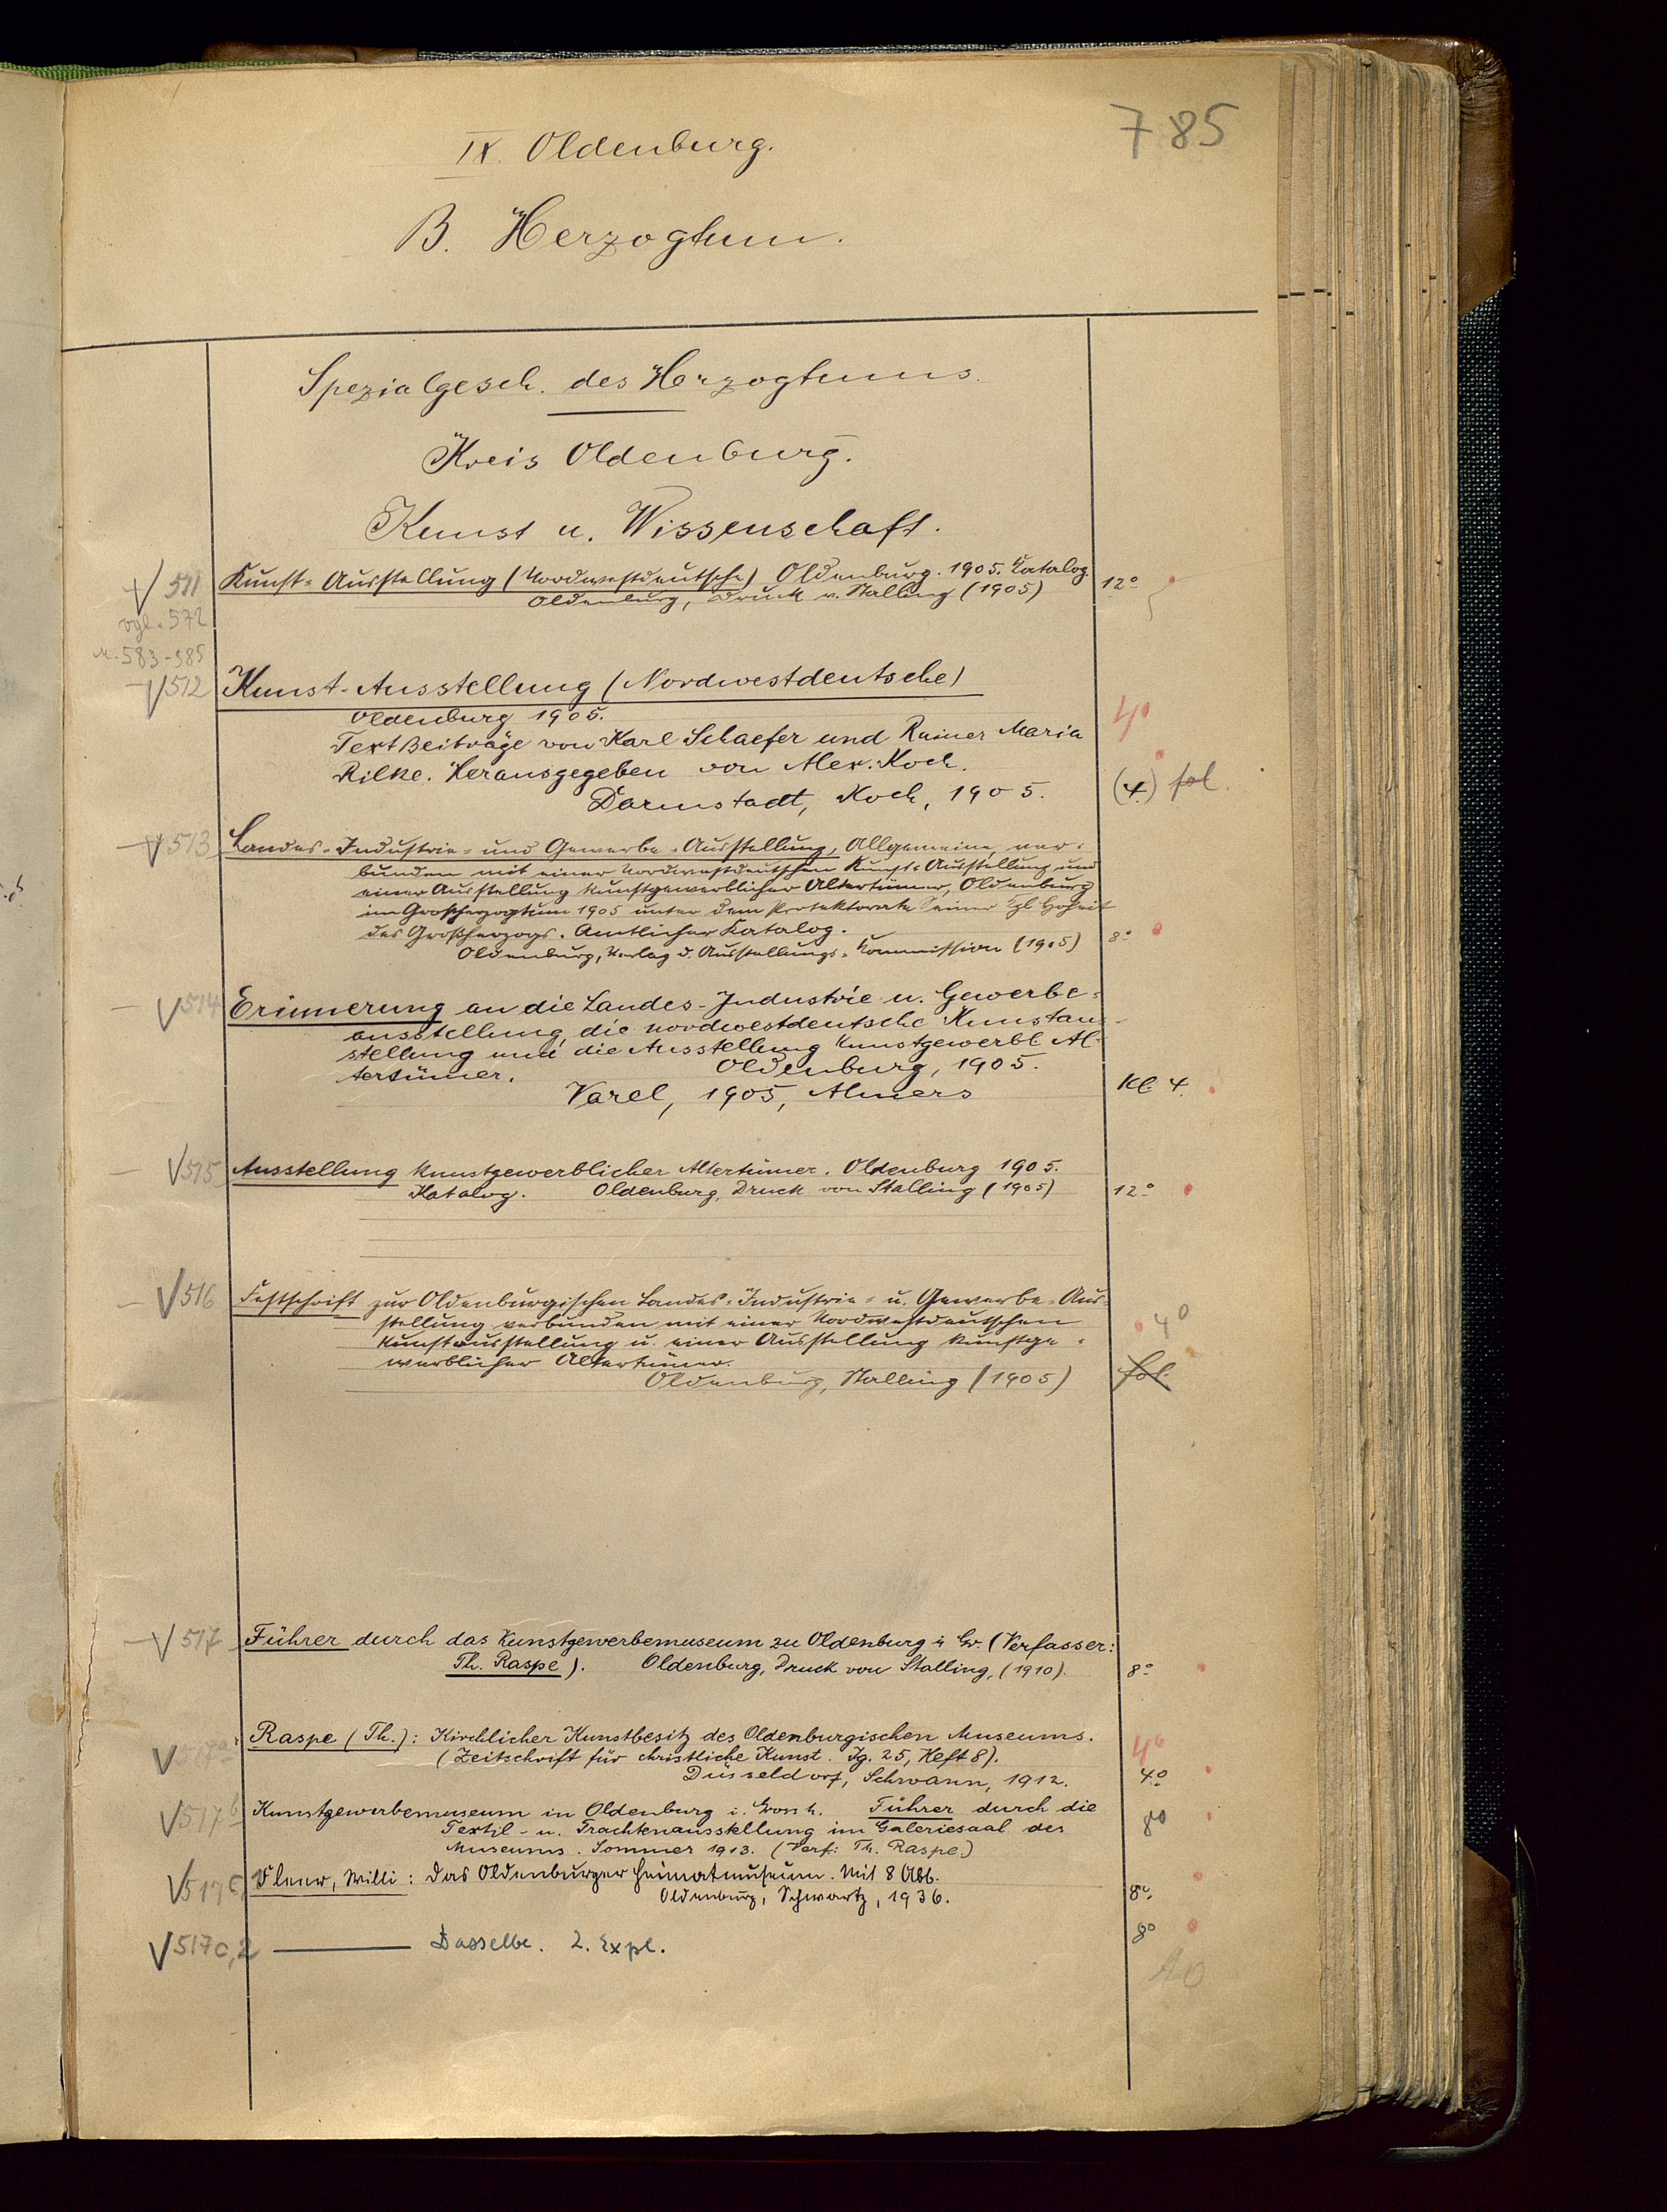 785
IX. Oldenburg.
B. Herzogtum.
Spezialgesch. des Herzogtums.
Kreis Oldenburg.
Kunst u. Wissenschaft.
511 Kunst-Ausstellung (Nordwestdeutsche) Oldenburg. 1905. Katalog.
Oldenburg, Druck v. Stalling (1905) 12°
vgl. 572
u. 583-585
512 Kunst-Ausstellung (Nordwestdeutsche)
Oldenburg 1905.
Text Beiträge von Karl Schaefer und Rainer Maria 4°
Rilke. Herausgegeben von Alex. Koch.
Darmstadt, Koch, 1905. (4.) fol.
513 Landes-Industrie- und Gewerbe-Ausstellung, Allgemeine, ver-
bunden mit einer Nordwestdeutschen Kunst-Ausstellung und
einer Ausstellung kunstgewerblicher Altertümer, Oldenburg
im Großherzogtum 1905 unter dem Protektorate Seiner Kgl Hoheit
des Großherzogs. Amtlicher Katalog.
Oldenburg, Verlag d. Ausstellungs-Kommission (1905) 8°
514 Erinnerung an die Landes-Industrie u. Gewerbe-
ausstellung, die nordwestdeutsche Kunstaus-
stellung und die Ausstellung kunstgewerbl. Al-
tertümer. Oldenburg, 1905.
Varel, 1905, Allmers Kl. 4.
515 Ausstellung kunstgewerblicher Altertümer. Oldenburg 1905.
Katalog. Oldenburg, Druck von Stalling (1905) 12°
516 Festschrift zur Oldenburgischen Landes-Industrie- u. Gewerbe-Aus-
stellung verbunden mit einer Nordwestdeutschen 4°
Kunstausstellung u. einer Ausstellung kunstge-
werblicher Altertümer. fol.
Oldenburg, Stalling (1905)
517 Führer durch das Kunstgewerbemuseum zu Oldenburg i. Gr. (Verfasser:
Th. Raspe). Oldenburg, Druck von Stalling, (1910). 8°
517a Raspe (Th.): Kirchlicher Kunstbesitz des Oldenburgischen Museums.
(Zeitschrift für christliche Kunst. Jg. 25, Heft 8). 4°
Düsseldorf, Schwann, 1912. 4°
517b Kunstgewerbemuseum in Oldenburg i. Grossh. Führer durch die
Textil- u. Trachtenausstellung im Galeriesaal des 8°
Museums. Sommer 1913. (Verf: Th. Raspe.)
517c Willi: Das Oldenburger Heimatmuseum. Mit 8 Abb.
Oldenburg, Schwartz, 1936. 8°
517c,2 Dasselbe. 2. Expl. 8°
10